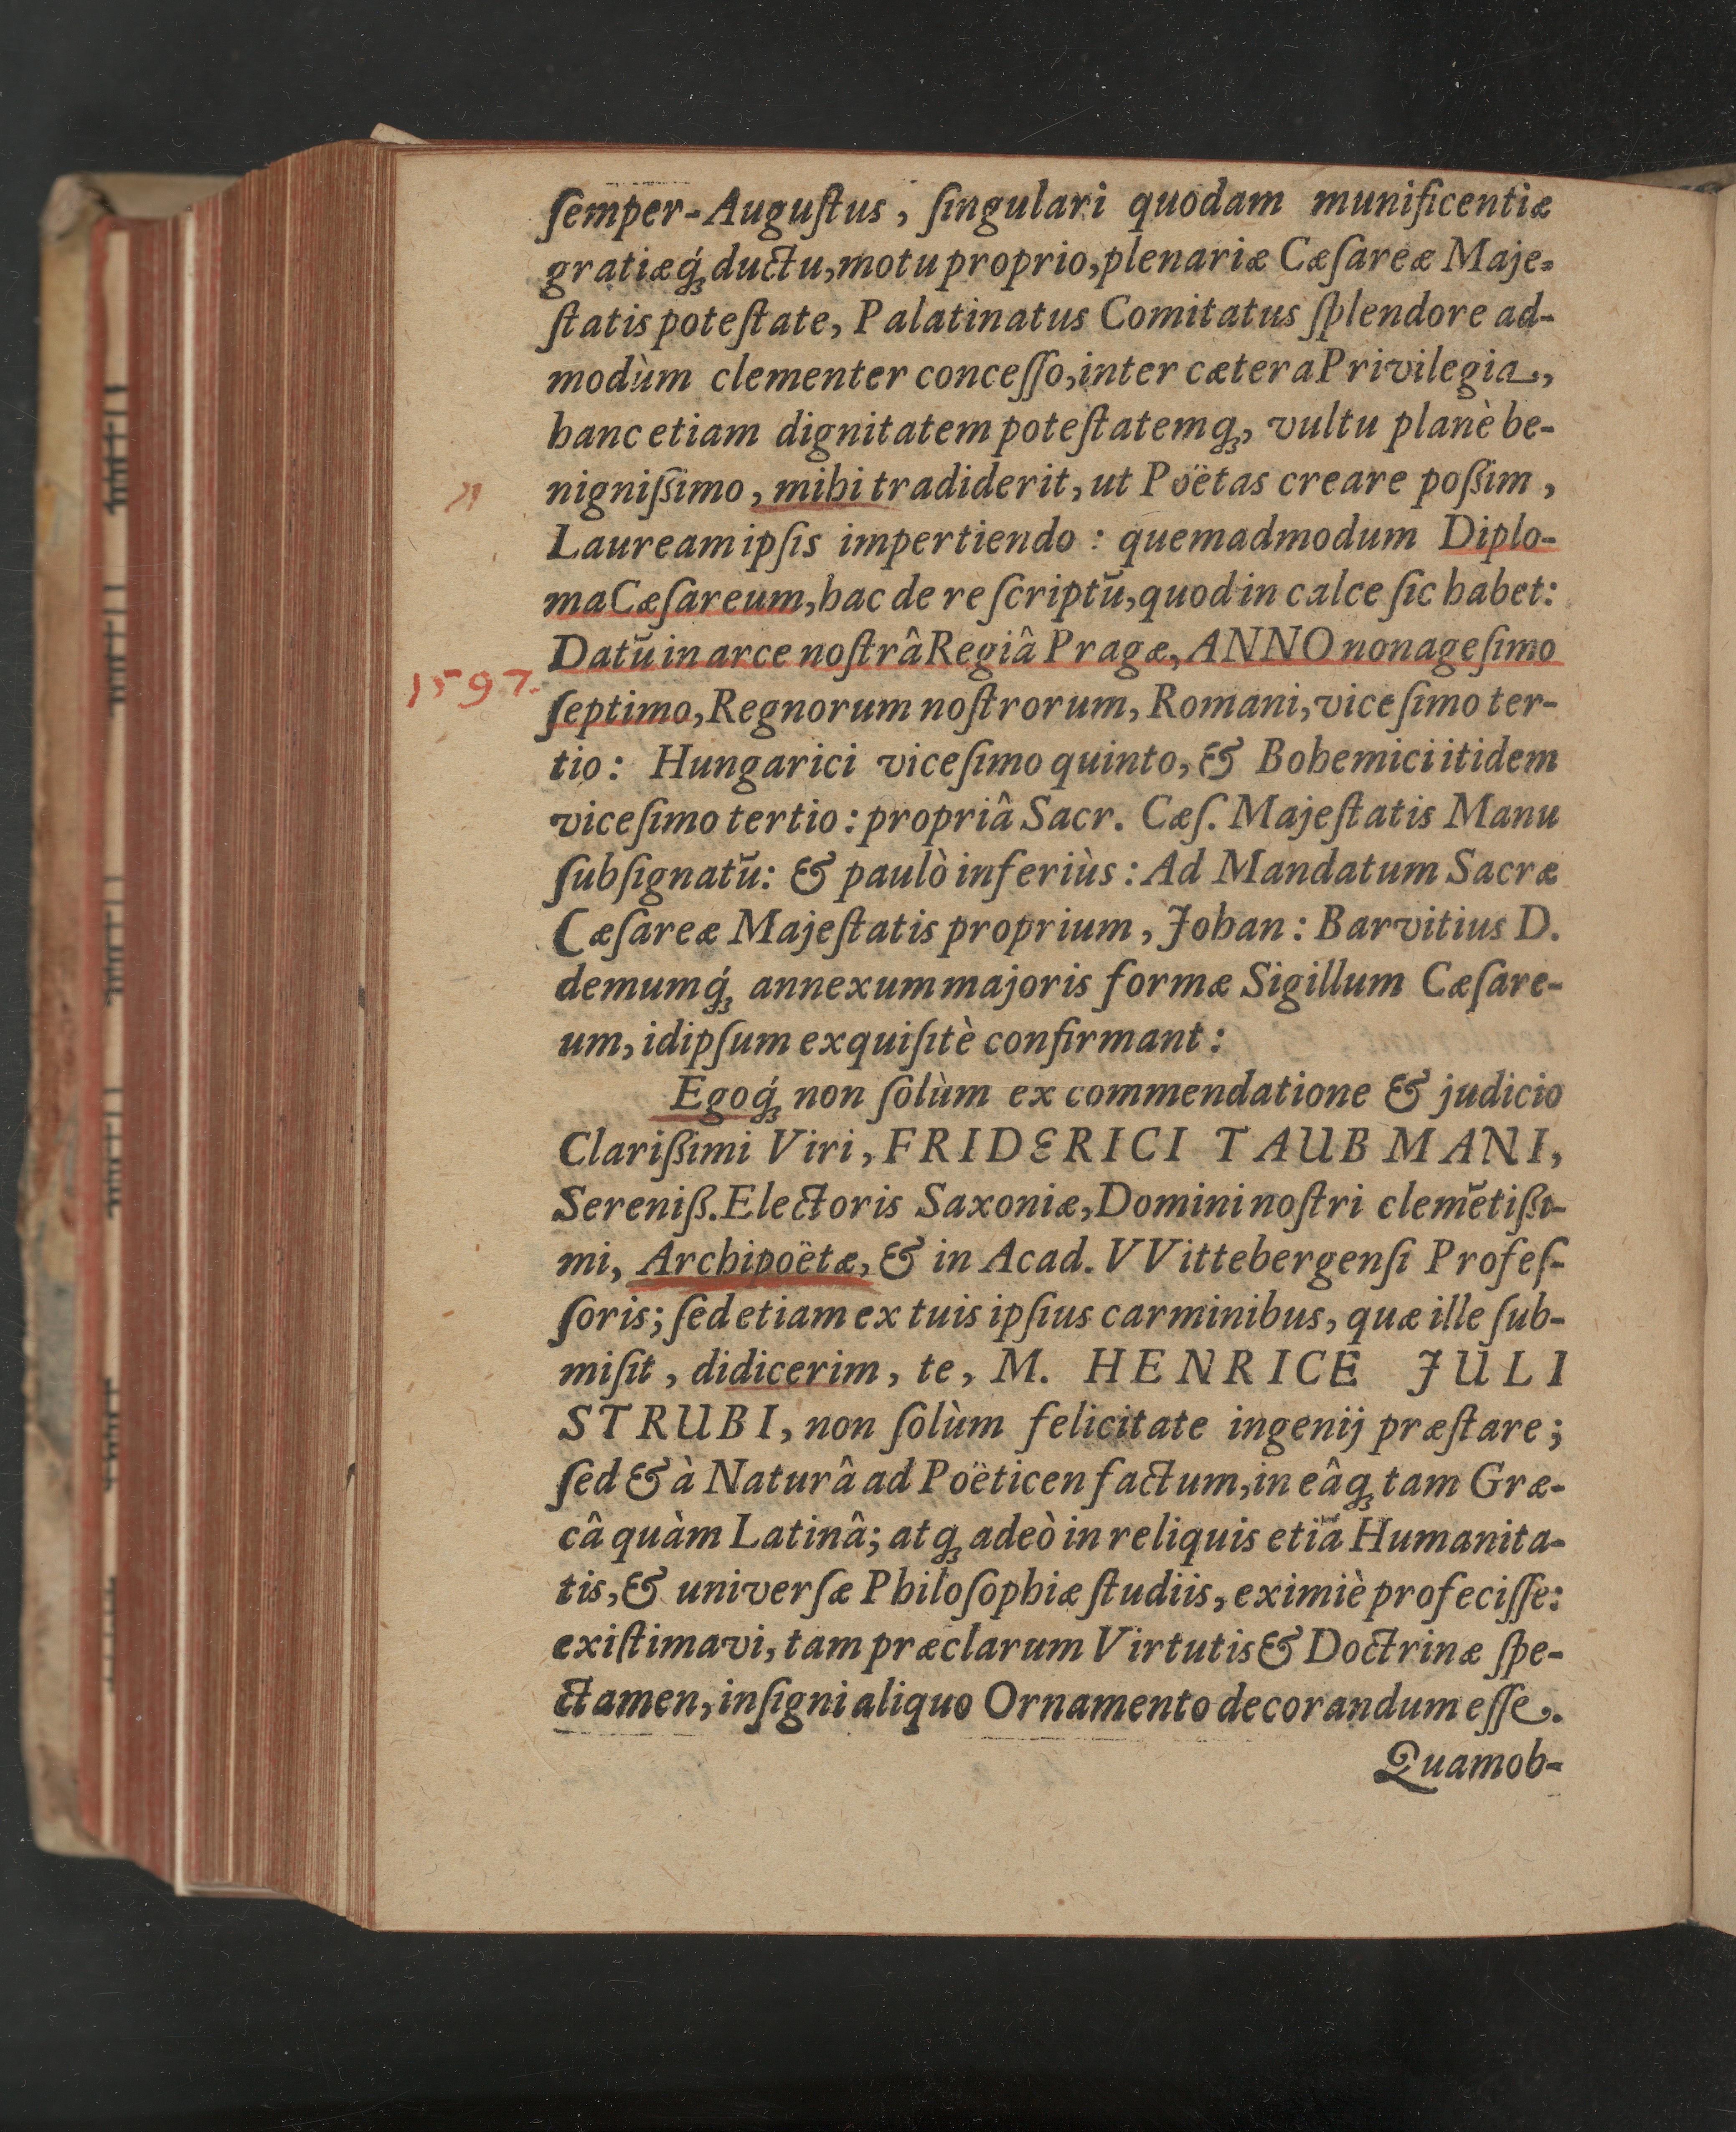 ſemper-Auguſtus, ſingulari quodam munificentiæ
gratiæq́ꝫ ductu, motu proprio, plenariæ Cæſareæ Maje-
ſtatis poteſtate, Palatinatus Comitatus ſplendore ad-
modùm clementer conceſſo, inter cætera Privilegia,
hanc etiam dignitatem poteſtatemqꝫ, vultu planè be-
nigniſſimo, mihi tradiderit, ut Poëtas creare poßim,
Lauream ipſis impertiendo: quemadmodum Diplo-
ma Cæſareum, hac de re ſcriptū, quod in calce ſic habet:
Datū in arce noſtrâ Regiâ Pragæ, ANNO nonageſimo
1597.
ſeptimo, Regnorum noſtrorum, Romani, viceſimo ter-
tio: Hungarici viceſimo quinto, & Bohemici itidem
viceſimo tertio: propriâ Sacr. Cæſ. Majeſtatis Manu
ſubſignatū: & paulò inferiùs: Ad Mandatum Sacræ
Cæſareæ Majeſtatis proprium, Johan: Barvitius D.
demumq́ꝫ annexum majoris formæ Sigillum Cæſare-
um, idipſum exquiſitè confirmant:
Egoq́ꝫ non ſolùm ex commendatione & judicio
Clarißimi Viri, FRIDERICI TAUBMANI,
Sereniß. Electoris Saxoniæ, Domini noſtri clemētißi-
mi, Archipoëtæ, & in Acad. VVittebergenſi Profeſ-
ſoris; ſed etiam ex tuis ipſius carminibus, quæ ille ſub-
miſit, didicerim, te, M. HENRICE JULI
STRUBI, non ſolùm felicitate ingenij præſtare;
ſed & à Naturâ ad Poëticen factum, in eâqꝫ tam Græ-
câ quàm Latinâ; atqꝫ adeò in reliquis etiā Humanita-
tis, & univerſæ Philoſophiæ ſtudiis, eximiè profeciſſe:
exiſtimavi, tam præclarum Virtutis & Doctrinæ ſpe-
ctamen, inſigni aliquo Ornamento decorandum eſſe.
Quamob-